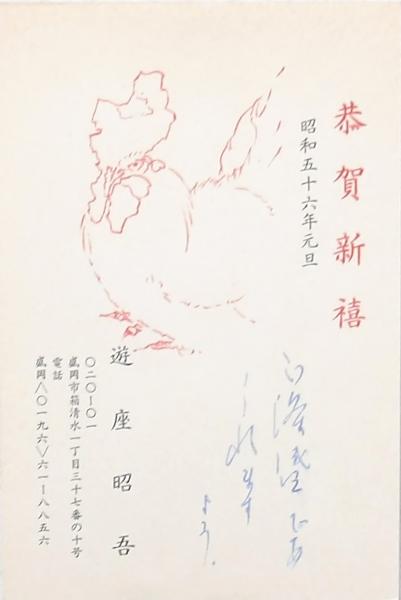 恭賀新禧
昭和五十六年元旦
ますよう。
遊座昭吾
〇二〇−〇一
盛岡市箱清水一丁目三十七番の十号
電話
盛岡/〇一九六/六一−八八五六